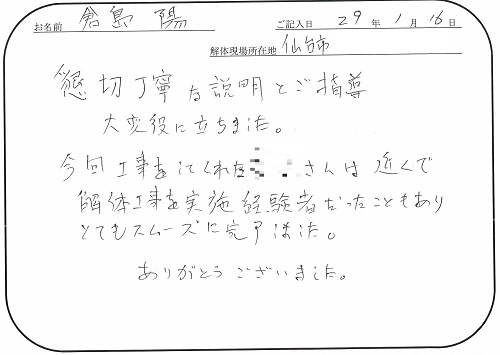 お名前 倉島 陽 ご記入日 29年 1月 16日
解体現場所在地 仙台市
懇切丁寧な説明とご指導
大変役に立ちました。
今回工事をしてくれた さんは近くで
解体工事を実施経験者だったこともあり
とてもスムーズに完了ました。
ありがとうございました。